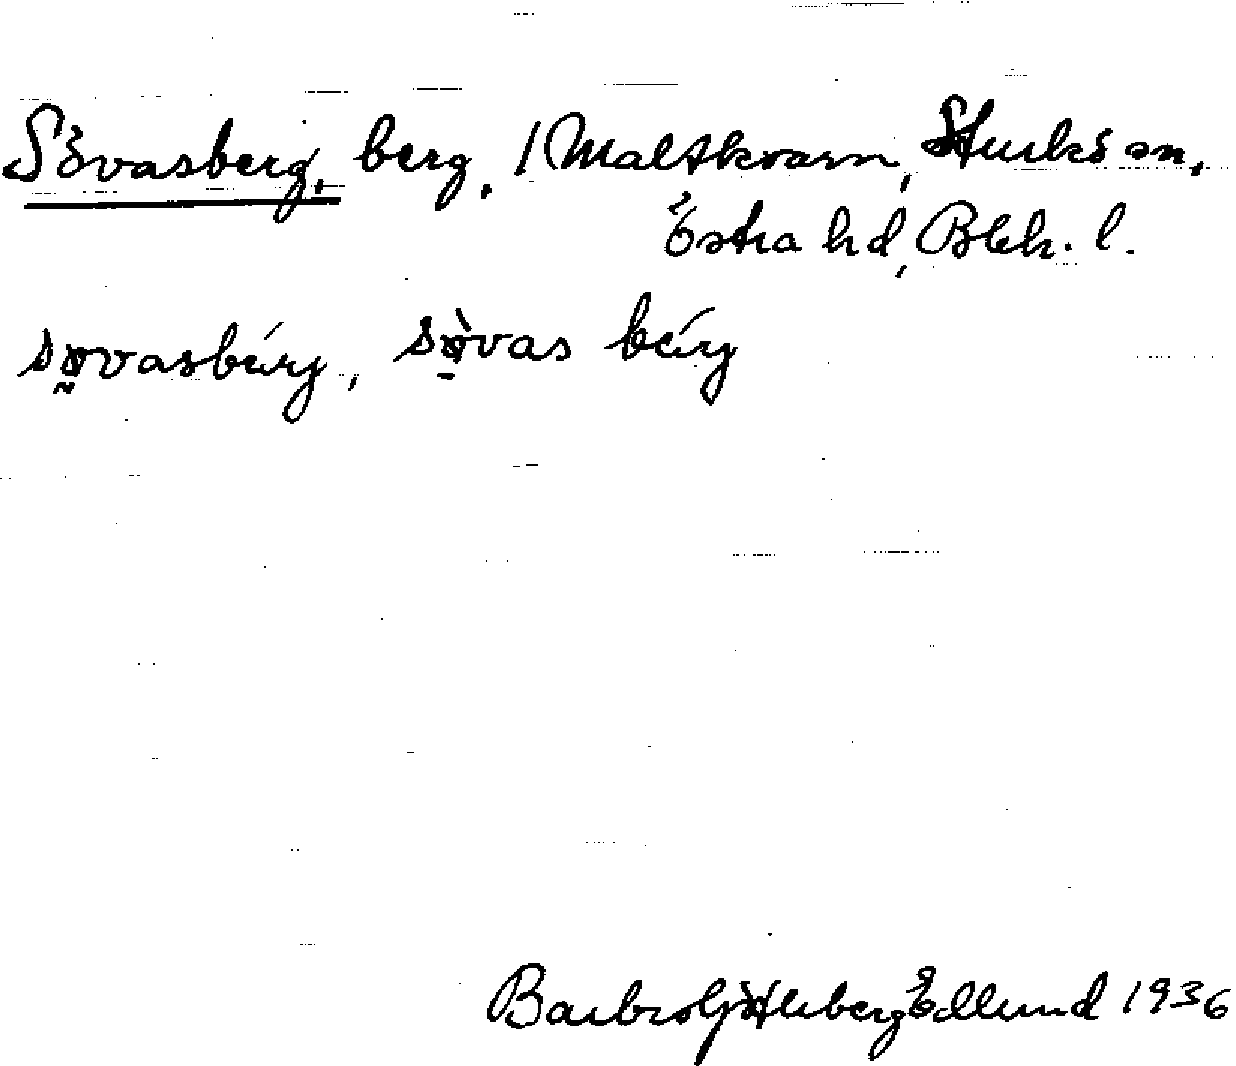 Sövasberg, berg, /Maltkvarn, Sturkö sn,
Östra hd, Blek. l.
søvasbérg, sø̀vas bérg
Barbro Götlieberg Edlund 1936